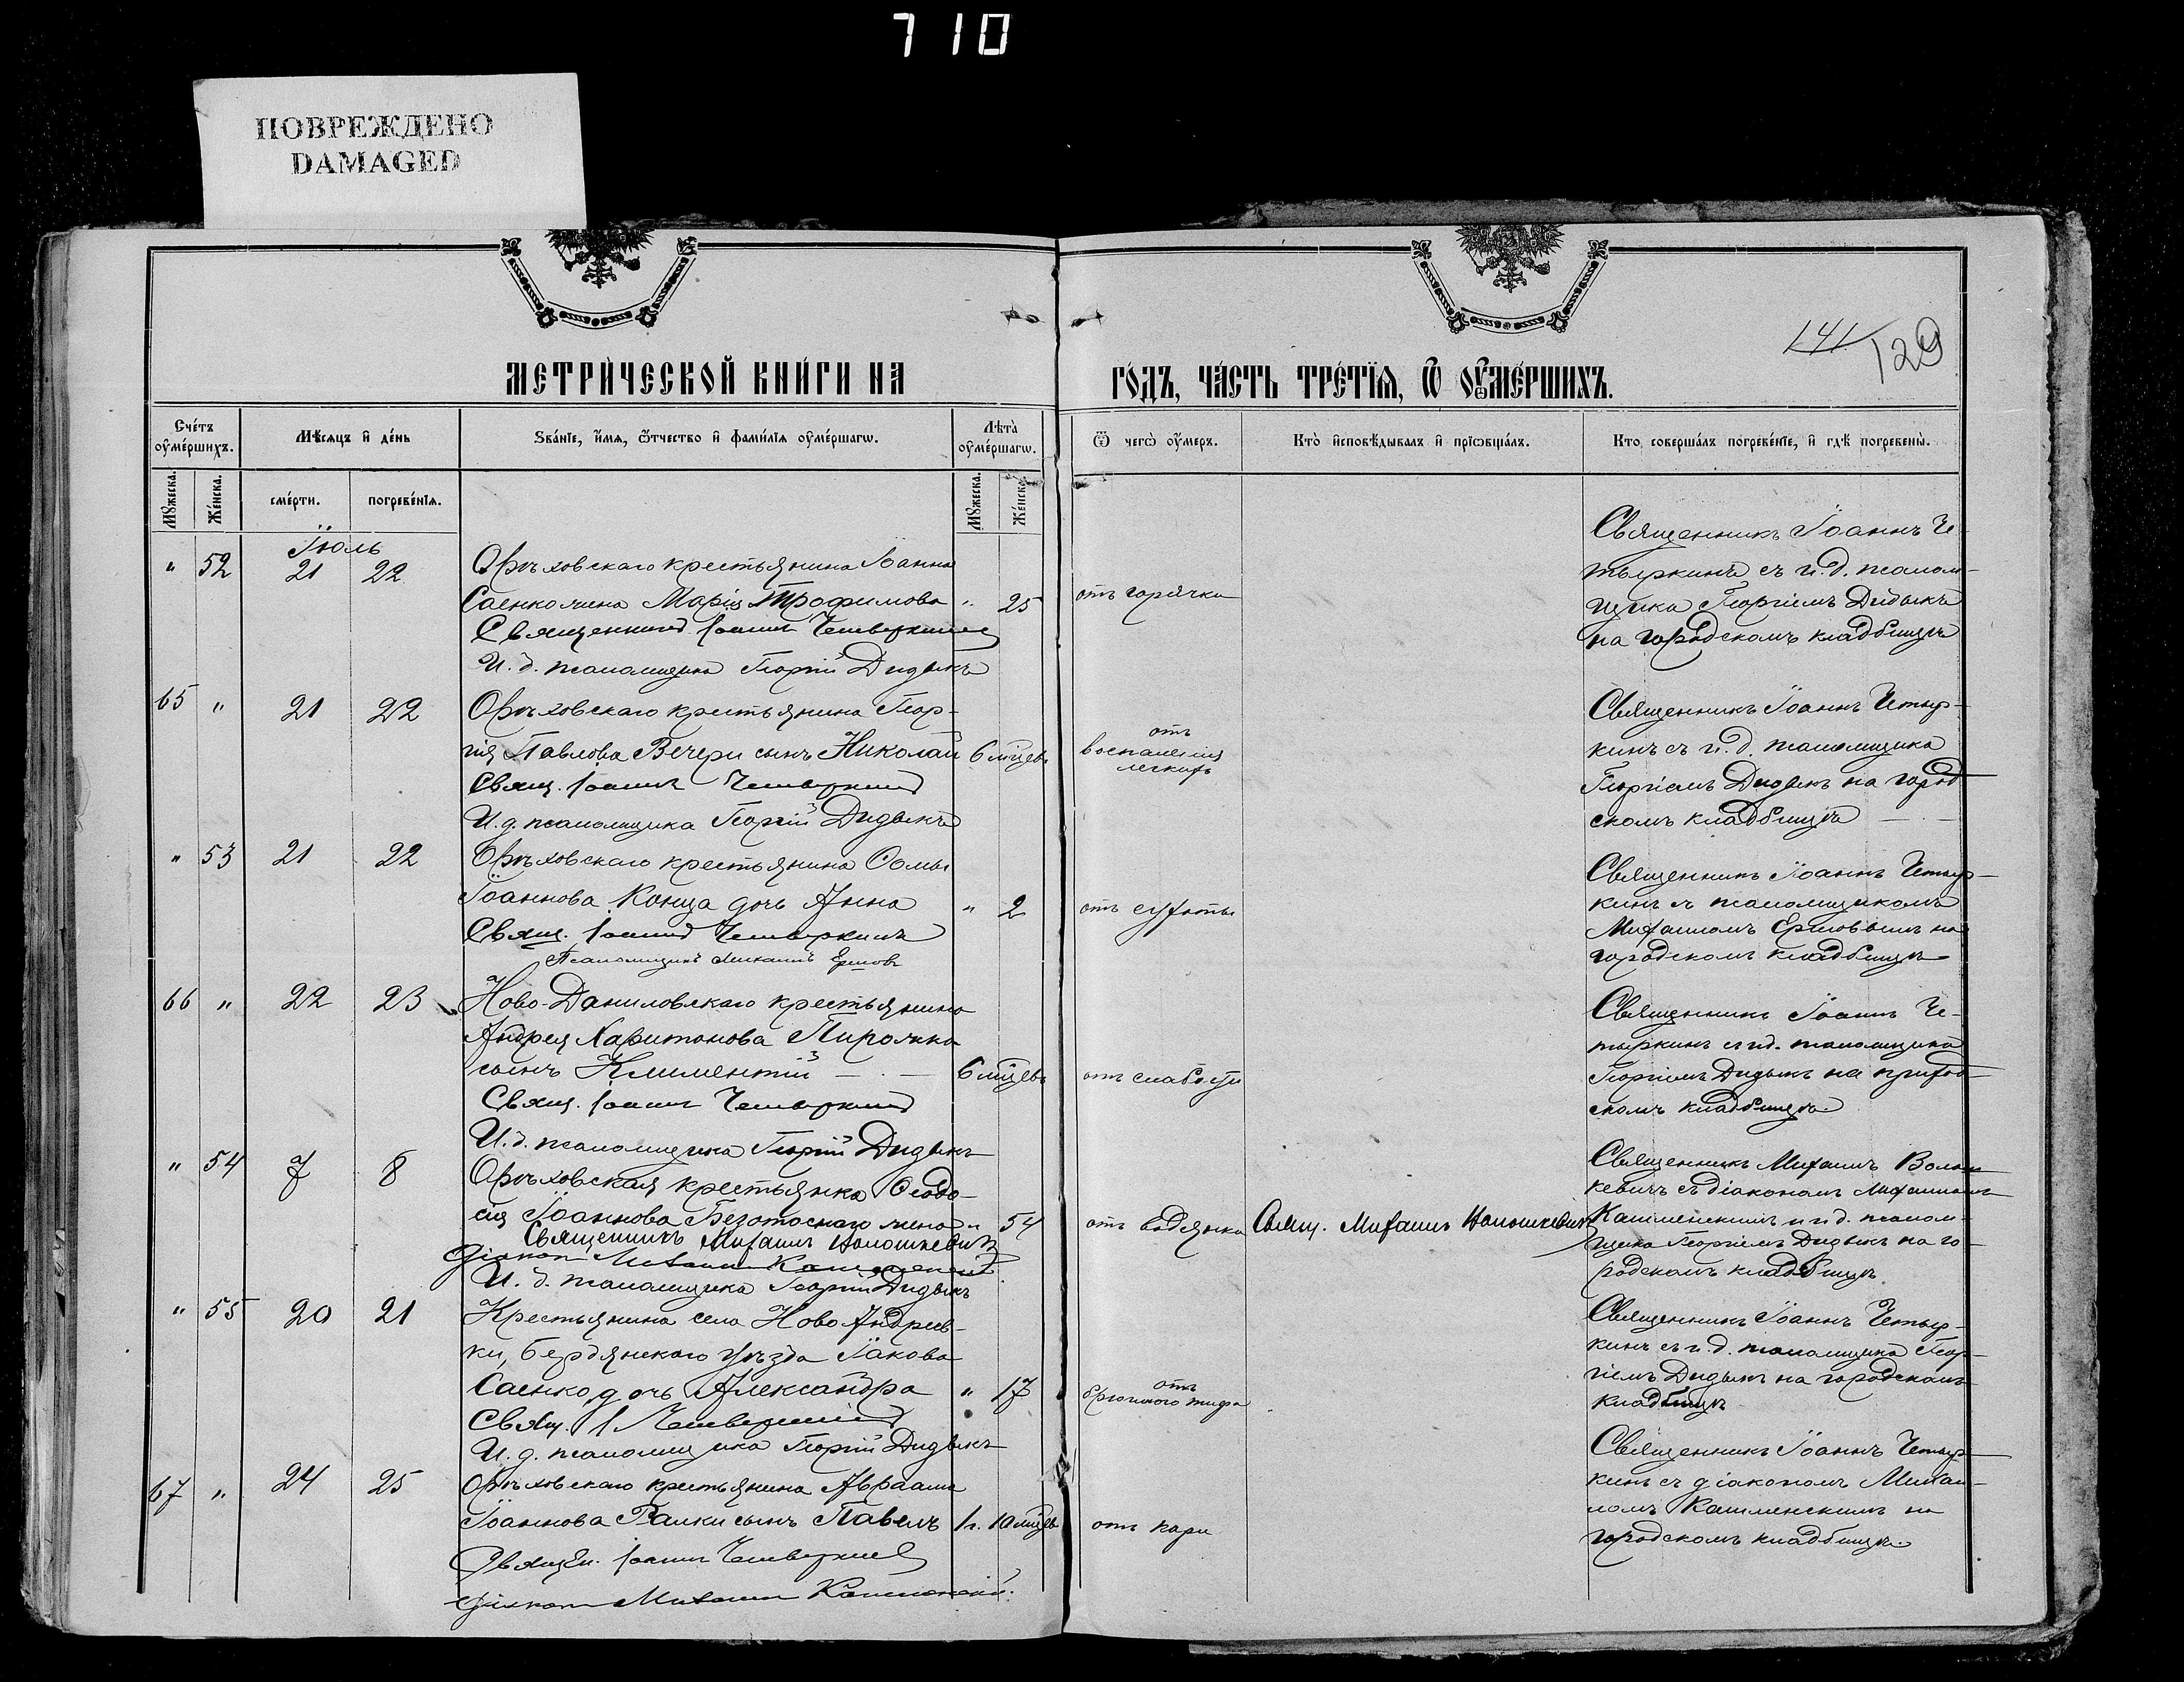 710
ПОВРЕЖДЕНО
DAMAGED
141
129
МЕТРИ́ЧЕСКОЙ КНИ́ГИ НА
ГО́ДЪ, ЧА́СТЬ ТРЕ́ТЇѦ, Ѡ҆ ОУ҆МЕ́РШИХЪ.
Сче́тъ оу҆ме́ршихъ.
Мѣ́сѧцъ и҆ де́нь
Ѕва́нїе, и҆́мѧ, ѻ҆́тчество и҆ фами́лїѧ оу҆ме́ршагѡ.
Лѣ́та оу҆ме́ршагѡ.
Ѿ чегѡ̀ оу҆́меръ.
Кто̀ и҆сповѣ́дывалъ и҆ прїѡбща́лъ.
Кто̀ соверша́лъ погребе́нїе, и҆ гдѣ̀ погребены̀.
Мꙋ́жеска.
Же́нска.
сме́рти.
погребе́нїѧ.
Мꙋ́жеска.
Же́нска.
Іюль
" 52 21 22
Орѣховскаго крестьянина Іоанна
Саенко жена Марія Трофимова " 25
Священникъ Іоаннъ Четыркинъ
И. д. псаломщика Георгій Дидыкъ
отъ горячки
Священникъ Іоаннъ Че-
тыркинъ съ и. д. псалом-
щика Георгіемъ Дидыкъ
на городскомъ кладбищѣ
65 " 21 22
Орѣховскаго крестьянина Геор-
гія Павлова Вечери сынъ Николай 6 мѣцевъ
Свящ. Іоаннъ Четыркинъ
И. д. псаломщика Георгій Дидыкъ
отъ
воспаленія
легкихъ
Священникъ Іоаннъ Четыр-
кинъ съ и. д. псаломщика
Георгіемъ Дидыкъ на город-
скомъ кладбищѣ
" 53 21 22
Орѣховскаго крестьянина Ѳомы
Іоаннова Конца дочь Анна " 2
Свящ. Іоаннъ Четыркинъ
Псаломщикъ Михаилъ Ершовъ
отъ сухоты
Священникъ Іоаннъ Четыр-
кинъ съ псаломщикомъ
Михаиломъ Ершовымъ на
городскомъ кладбищѣ
66 " 22 23
Ново-Даниловскаго крестьянина
Андрея Харитонова Пирожка
сынъ Климентій 6 мѣцевъ
Свящ. Іоаннъ Четыркинъ
И. д. псаломщика Георгій Дидыкъ
отъ слабости
Священникъ Іоаннъ Че-
тыркинъ съ и. д. псаломщика
Георгіемъ Дидыкъ на приход-
скомъ кладбищѣ.
" 54 7 8
Орѣховская крестьянка Ѳеодо-
сія Іоаннова Безотоснаго жена " 54
Священникъ Михаилъ
Діаконъ Михаилъ Каташенскій
И. д. псаломщика Георгій Дидыкъ
отъ водянки
Свящ. Михаилъ
Священникъ Михаилъ
кевичъ съ діакономъ Михаиломъ
и и. д. псалом-
щика Георгіемъ Дидыкъ на го-
родскомъ кладбищѣ.
" 55 20 21
Крестьянина села Ново Андреев-
ки, Бердянскаго уѣзда Іакова
Саенко дочь Александра " 17
Свящ. І Четыркинъ
И. д. псаломщика Георгій Дидыкъ
отъ
брюшного тифа
Священникъ Іоаннъ Четыр-
кинъ съ и. д. псаломщика Геор-
гіемъ Дидыкъ на городскомъ
кладбищѣ
67 " 24 25
Орѣховскаго крестьянина Авраама
Іоаннова Ралки сынъ Павелъ 1 г. 10 мѣцевъ
Священ. Іоаннъ Четыркинъ
Діаконъ Михаилъ
отъ кори
Священникъ Іоаннъ Четыр-
кинъ съ діакономъ Михаи-
ломъ на
городскомъ кладбищѣ.